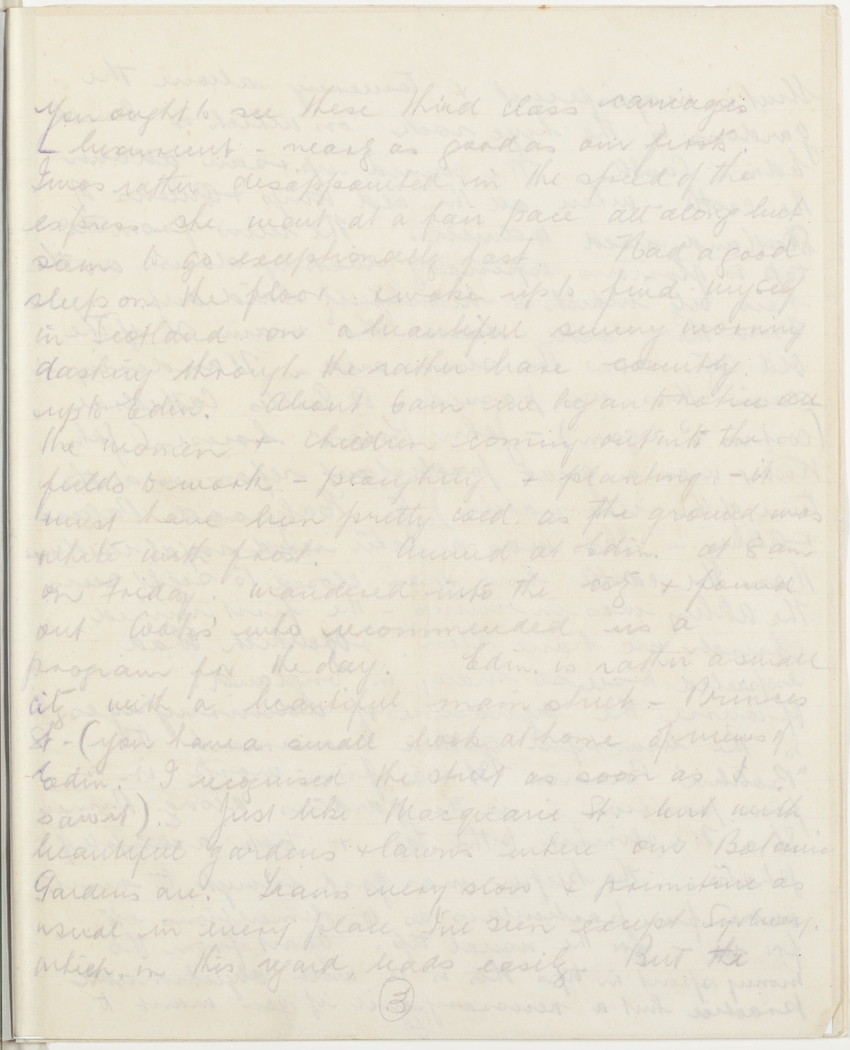 You ought to see these third class carriages
luxurient - nearly as good as our firsts.
I was rather disappointed in the speed of the
express she went at a fair pace all along but
seem to go exceptionally fast. Had a good
sleep on the floor & woke up to find myself
in Scotland on a beautiful sunny morning
dashing through the rather bare country.
up to Edin. About 6am we began to notice all
the women & children coming out into the
fields to work - ploughing & planting - it
must have been pretty cold as the ground was
white with frost. Arrived at Edin. at 8 am
on Friday. wandered into the city & found
out Cooks who recommended us a
program for the day. Edin. is rather a small
city with a beautiful main street - Princes
St - (you have a small book at home of views of
Edin. I recognised the street as soon as I
saw it). Just like Macquarie St. but with
beautiful gardens & lawns where our Botanic
Gardens are. Trams very slow & primitive as
usual in every place I've seen except Sydney.
which, in this regard, leads easily. But the
3